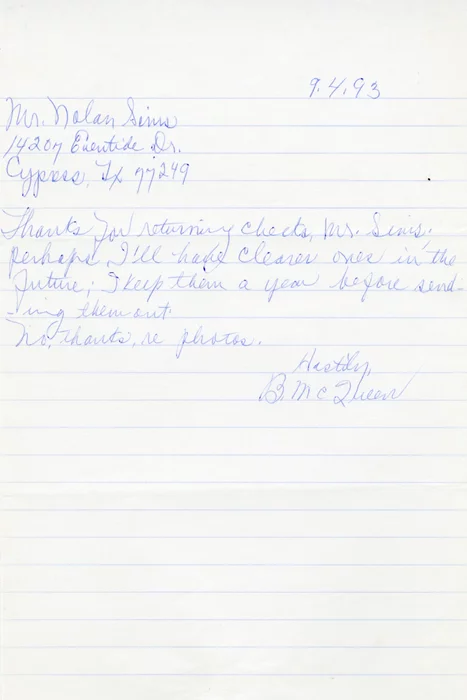 9.4.93
Mr. Nolan Sims
14207 Eventide Dr.
Cypress, Tx 77249
Thanks for returning checks, Mr. Sims.
Perhaps I'll have clearer ones in the
future; I keep them a year before send-
-ing them out.
No, thanks, re photos.
Hastily,
B McQueen